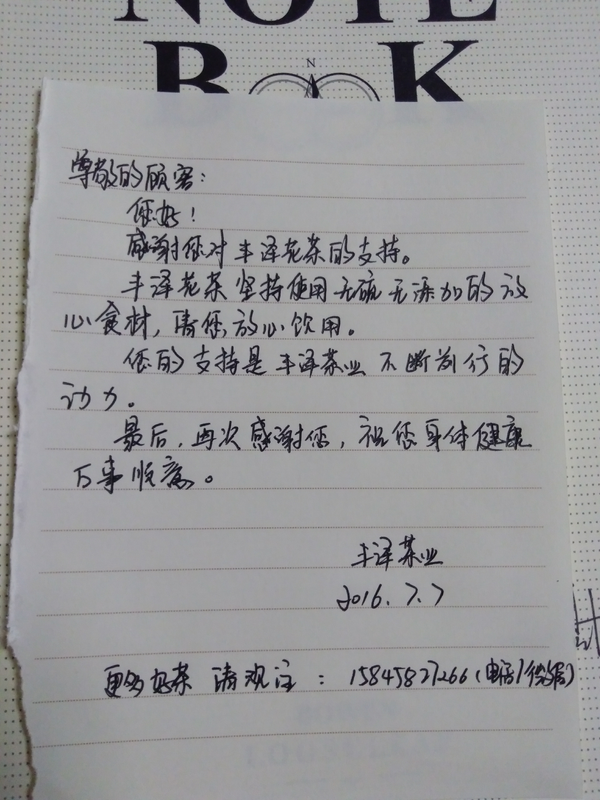 NOTE
BOOK
N
尊敬的顾客：
您好！
感谢您对丰泽花茶的支持。
丰泽花茶坚持使用无硫无添加的放
心食材，请您放心饮用。
您的支持是丰泽茶业不断前行的
动力。
最后，再次感谢您，祝您身体健康
万事顺意。
丰泽茶业
2016.7.7
更多好茶 请观注：15845827266（电话/微信）